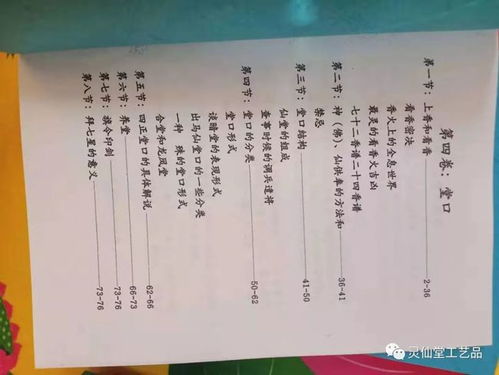 第四卷：堂口
第一节：上香和看香 2-36
看香密决
香火上的全息世界
最灵的看香火吉凶
七十二香谱二十四香谱
第二节：神（佛）、仙供奉的方法和 36-41
禁忌
第三节：堂口结构 41-50
仙堂的组成
查事时候的调兵遣将
第四节：堂口的分类 50-62
堂口形式
诙暗堂的表现形式
出马仙堂口的一些分类
一种 殊的堂口形式
合堂和龙凤堂
第五节：四正堂口的具体解说 62-66
第六节：养堂 66-73
第七节：旗令印剑 73-76
第八节：拜七星的意义 73-76
灵仙堂工艺品